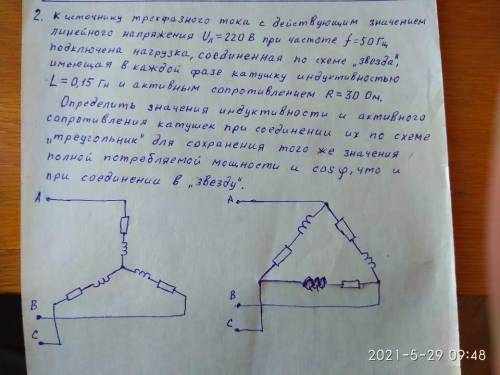 2. К источнику трехфазного тока с действующим значением
линейного напряжения Uл = 220 В при частоте f = 50 Гц
подключена нагрузка, соединенная по схеме „звезда",
имеющая в каждой фазе катушку индуктивностью
L = 0,15 Гн и активным сопротивлением R = 30 Ом.
Определить значения индуктивности и активного
сопротивления катушек при соединении их по схеме
„треугольник" для сохранения того же значения
полной потребляемой мощности и cos φ, что и
при соединении в „звезду".
A
B
C
A
B
C
2021-5-29 09:48